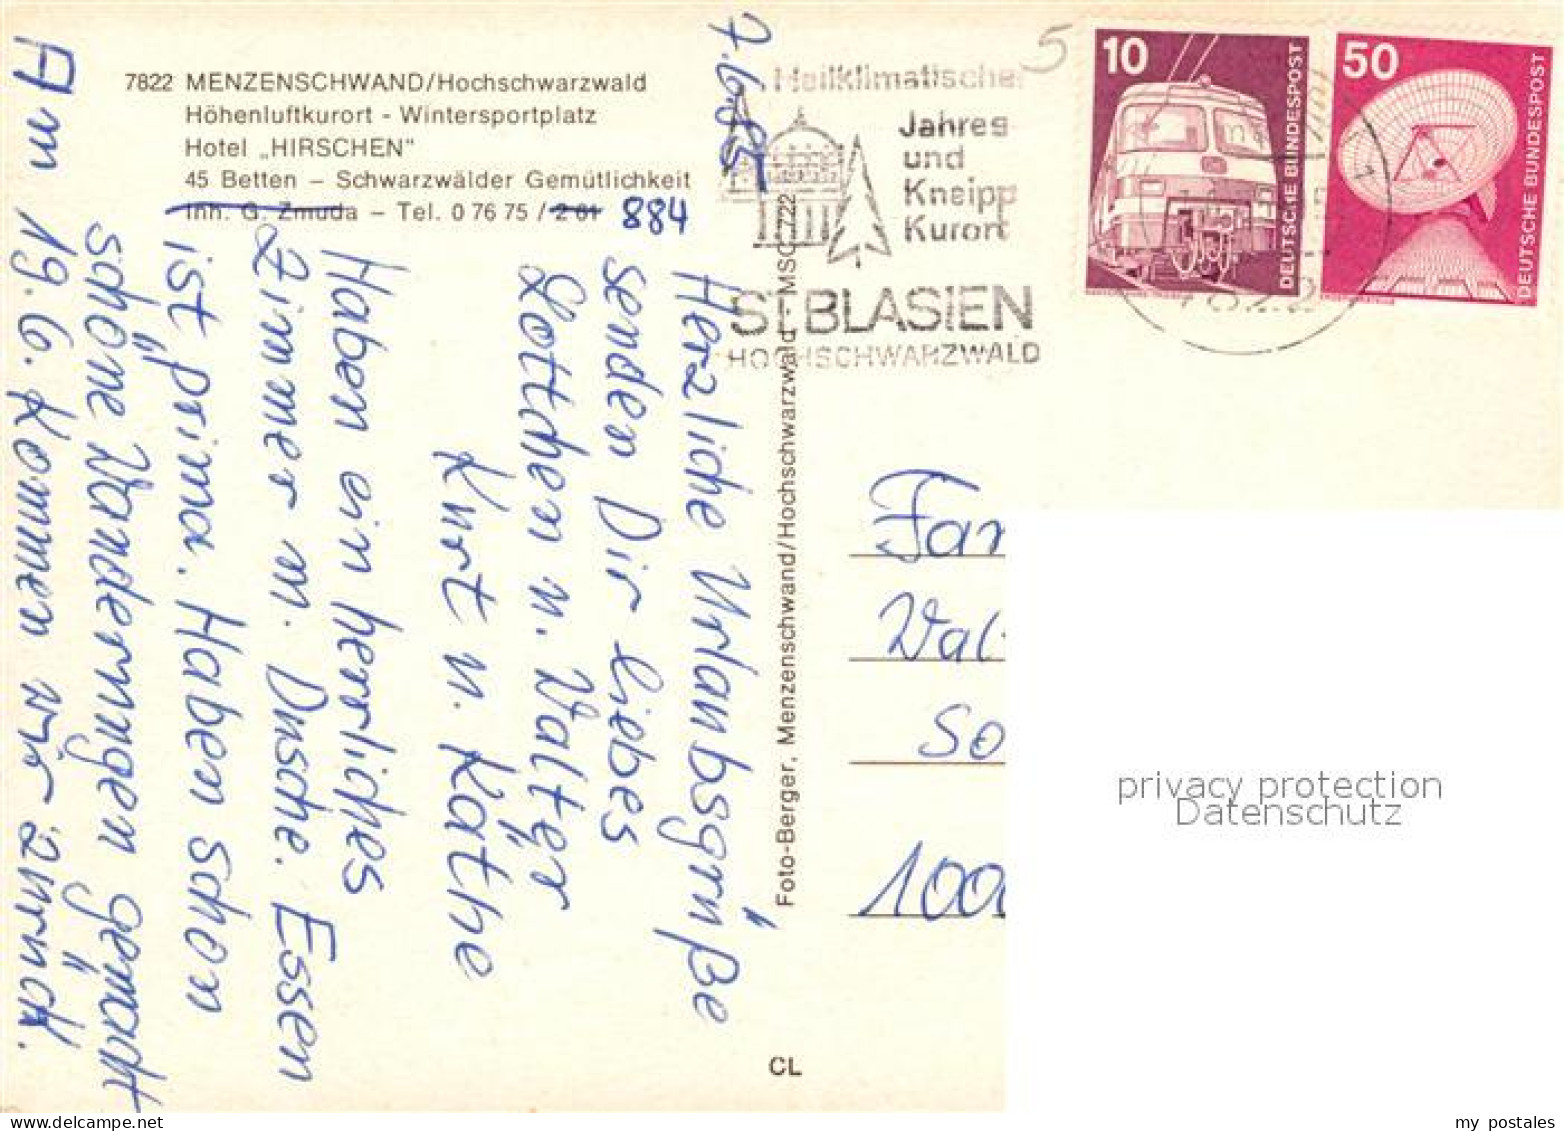 7822 MENZENSCHWAND/Hochschwarzwald
Höhenluftkurort - Wintersportplatz
Hotel „HIRSCHEN"
45 Betten – Schwarzwälder Gemütlichkeit
Inh. G. Zmuda – Tel. 0 76 75 / 2 61 884
7.6.85
Herzliche Urlaubsgrüße
senden Dir liebes
Lottchen u. Walter
Kurt u. Käthe
Haben ein herrliches
Zimmer m. Dusche. Essen
ist prima. Haben schon
schöne Wanderungen gemacht
Am 19.6. kommen wir zurück.
Foto-Berger, Menzenschwand/Hochschwarzwald - MSC 722
CL
5
Heilklimatischer
Jahres
und
Kneipp
Kurort
ST. BLASIEN
HOCHSCHWARZWALD
10
DEUTSCHE BUNDESPOST
50
DEUTSCHE BUNDESPOST
Fam
Wal
So
1000
privacy protection
Datenschutz
my postales